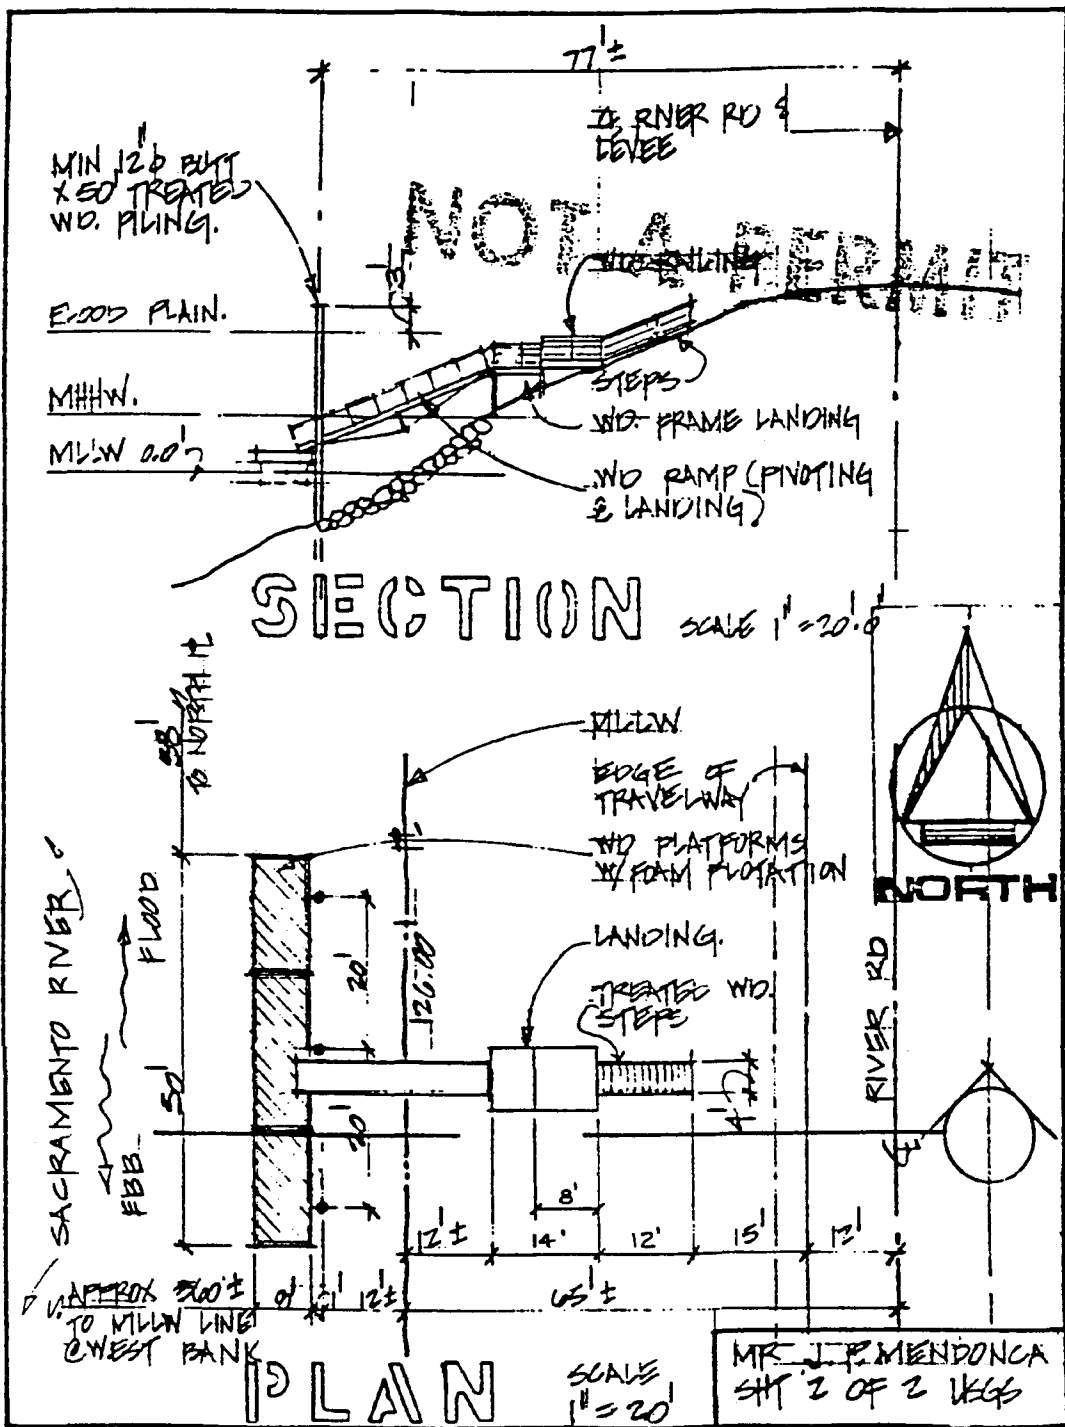 77'±
℄ RIVER RD &
LEVEE
MIN 12"ϕ BUTT
X 50' TREATED
WD. PILING.
NOT A PERMIT
WD RAILING
3'
FLOOD PLAIN.
STEPS
MHHW.
WD. FRAME LANDING
MLLW 0.0'
WD RAMP (PIVOTING
@ LANDING)
SECTION
SCALE 1"=20'.0"
38'
TO NORTH PL
MLLW
EDGE OF
TRAVELWAY
WD PLATFORMS
W/ FOAM FLOTATION
NORTH
SACRAMENTO RIVER
FLOOD
EBB
50'
20'
20'
126.00'±
LANDING.
TREATED WD.
STEPS
4'
RIVER RD
℄
8'
12'±
14'
12'
15'
12'
APPROX 560'±
TO MLLW LINE
@ WEST BANK
1'
12'±
65'±
PLAN
SCALE
1"=20'
MR J.P. MENDONCA
SHT 2 OF 2 USGS